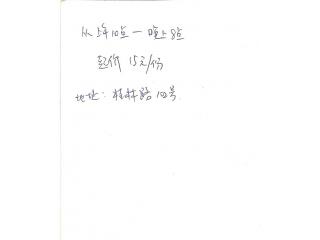 从上午10点一晚上8点
起价 15元/份
地址: 桂林路102号